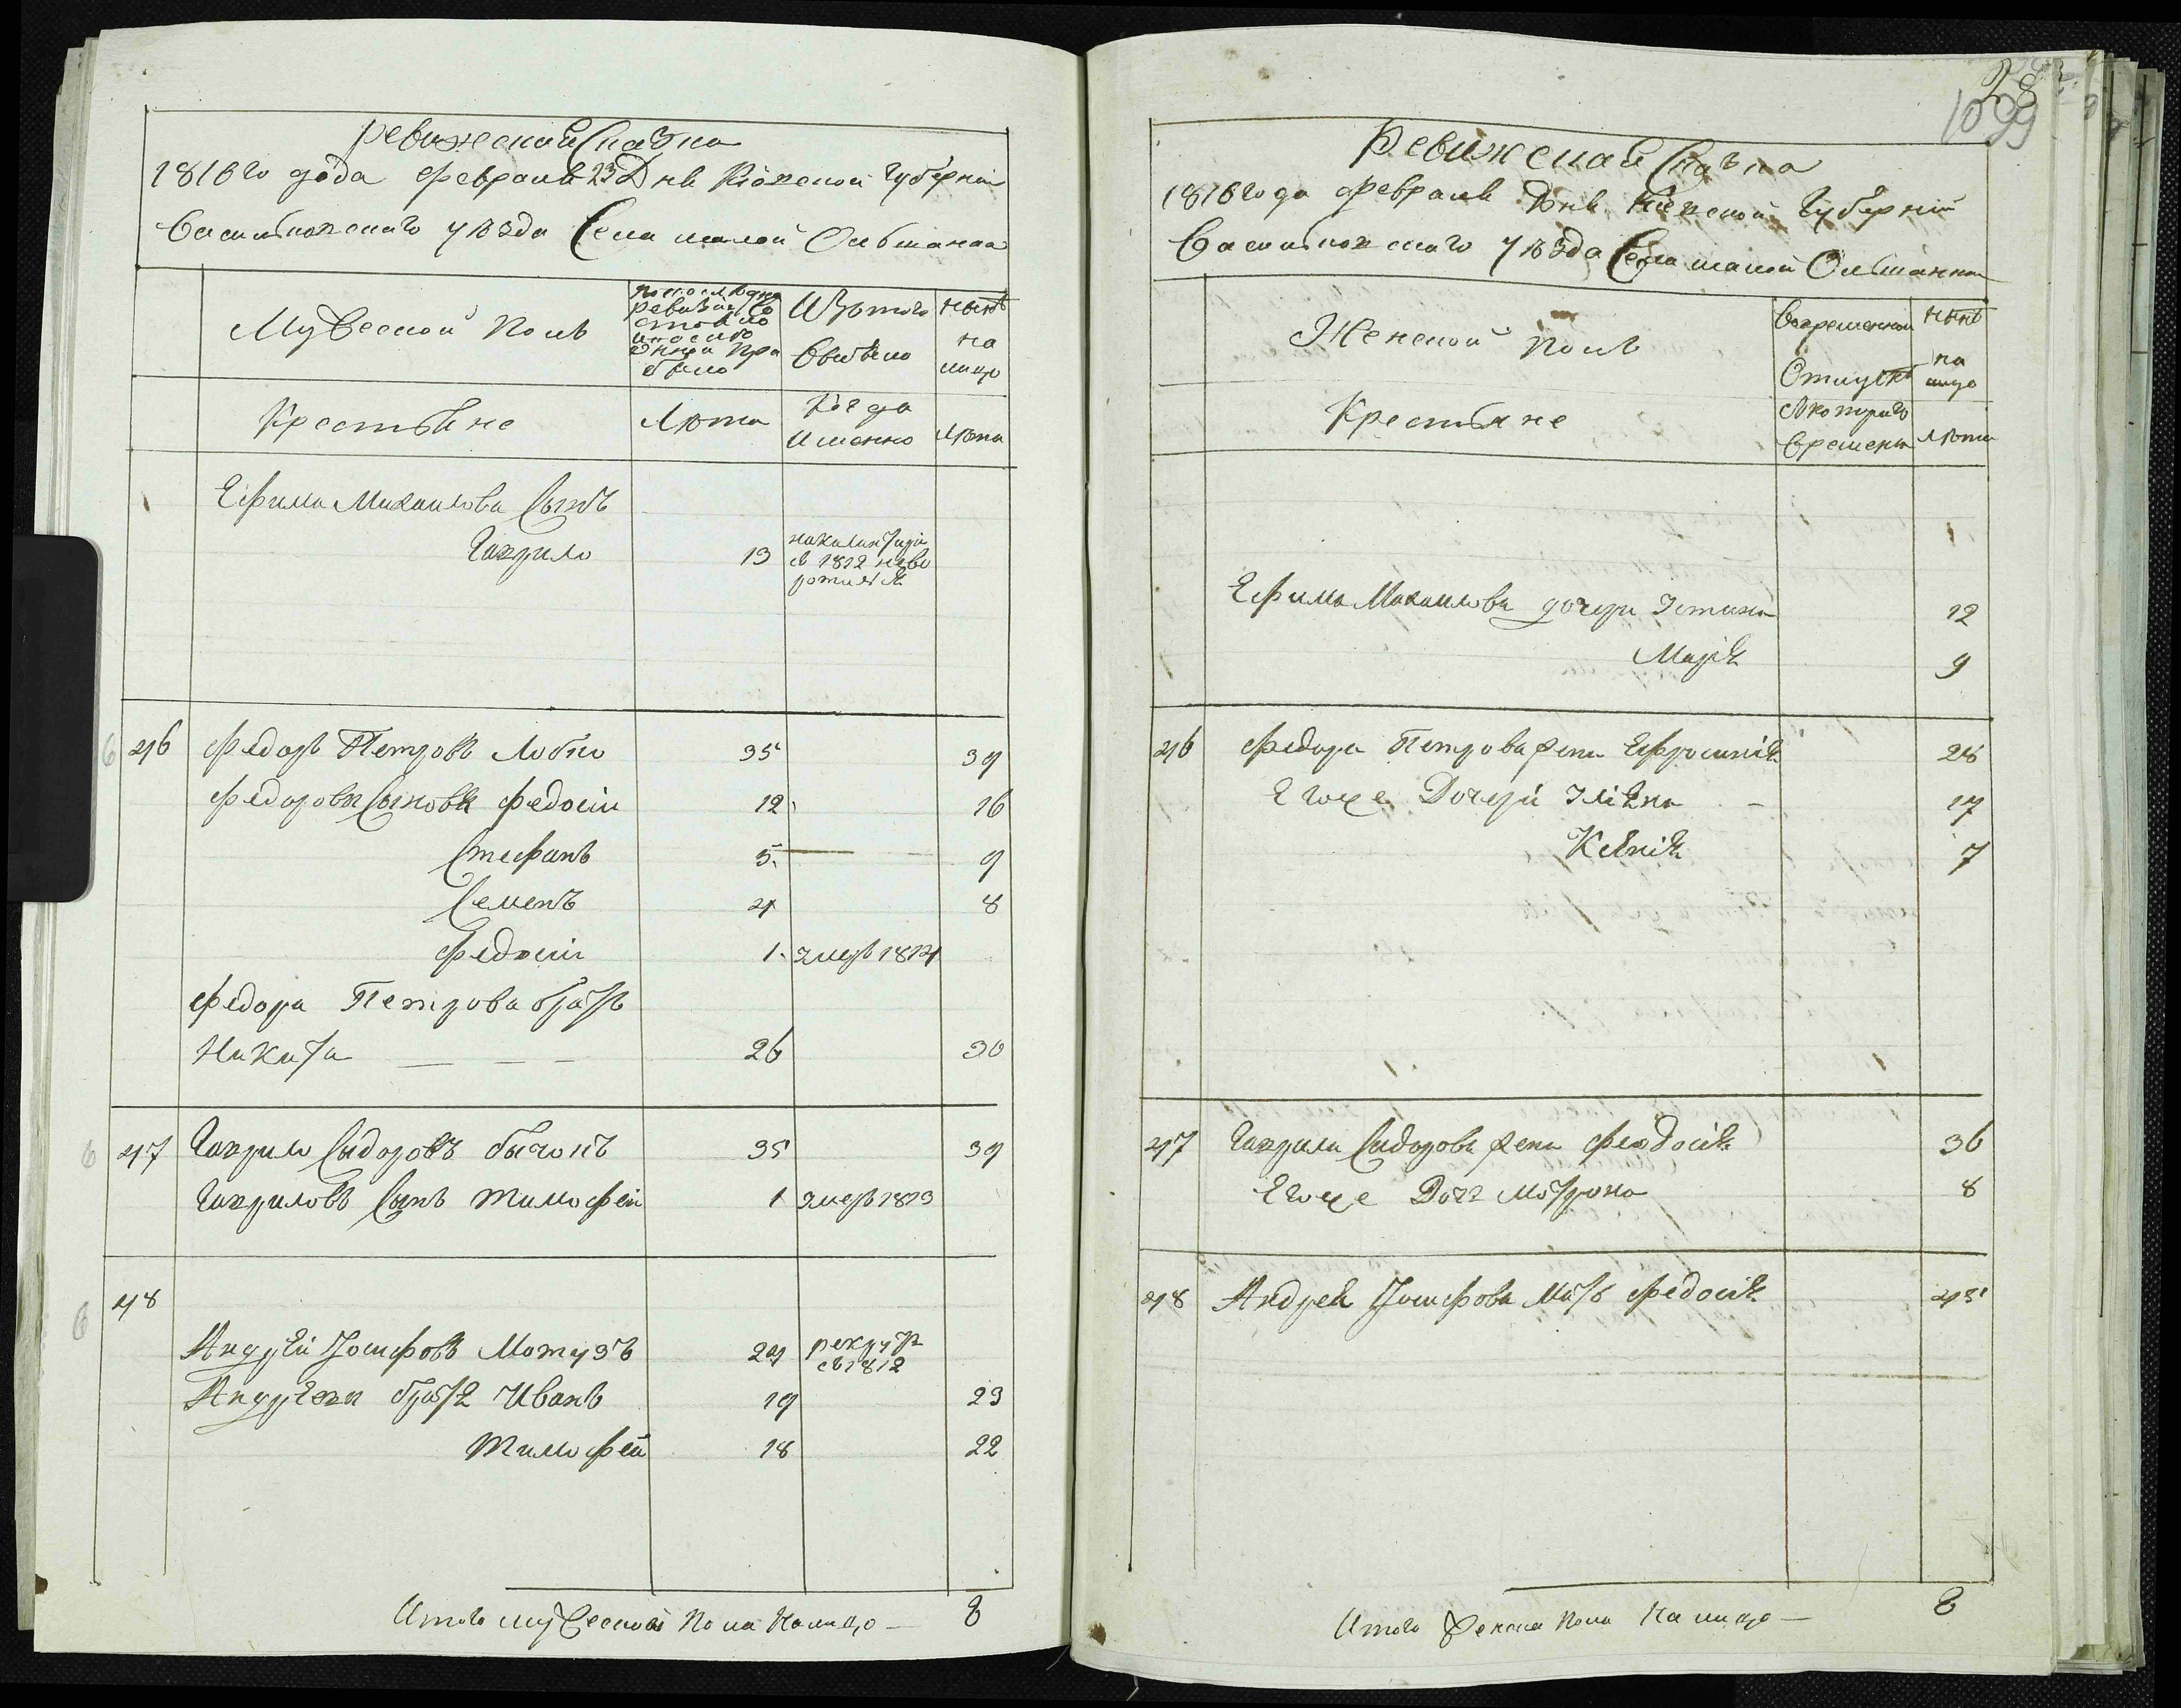 Ревижская Сказка
1816го года февраля 23 Дня Кіевской Губерніи
Васильковскаго уѣзда Села малой Ольшанки
Мужеской полъ
по последней ревизіи Состояло и после оной прибыло
Изътого выбыло
ныне на лицо
Крестьяне
Лѣта
Когда Именно
Лѣта
Ефима Михаилова Сынъ
Гаврило 13 въ 1812
46 Федоръ Петровъ Лобко 35 39
Федоровы Сыновя Федосій 12 16
Стефанъ 5 9
Семенъ 4 8
Федосій 1 умеръ 1814
Федора Петрова братъ
Никита 26 30
47 Гаврило Сидоровъ бычокъ 35 39
Гавриловъ Сынъ Тимофей 1 умеръ 1813
48
Андрей Іосифовъ Мотузъ 24 рекрутъ въ 1812
Андреевы братя Иванъ 19 23
Тимофей 18 22
Итого мужеска пола налицо — 8
28
1099
Ревижская Сказка
1816 года февраля Дня Кіевской Губерніи
Васильковскаго уѣзда Села малой Ольшанки
Женской полъ
Вовременной Отлучке
ныне на лицо
Крестьяне
Скотораго времени
Лѣта
Ефима Михаилова дочери Устина 12
Марія 9
46 Федора Петрова жена Ефросинія 28
Егоже Дочери Уліяна 17
Ксенія 7
47 Гаврила Сидорова жена Феодосія 36
Егоже Дочь Мотрона 8
48 Андрея Іосифова Мать Федосія 45
Итого Женска пола На лицо — 8